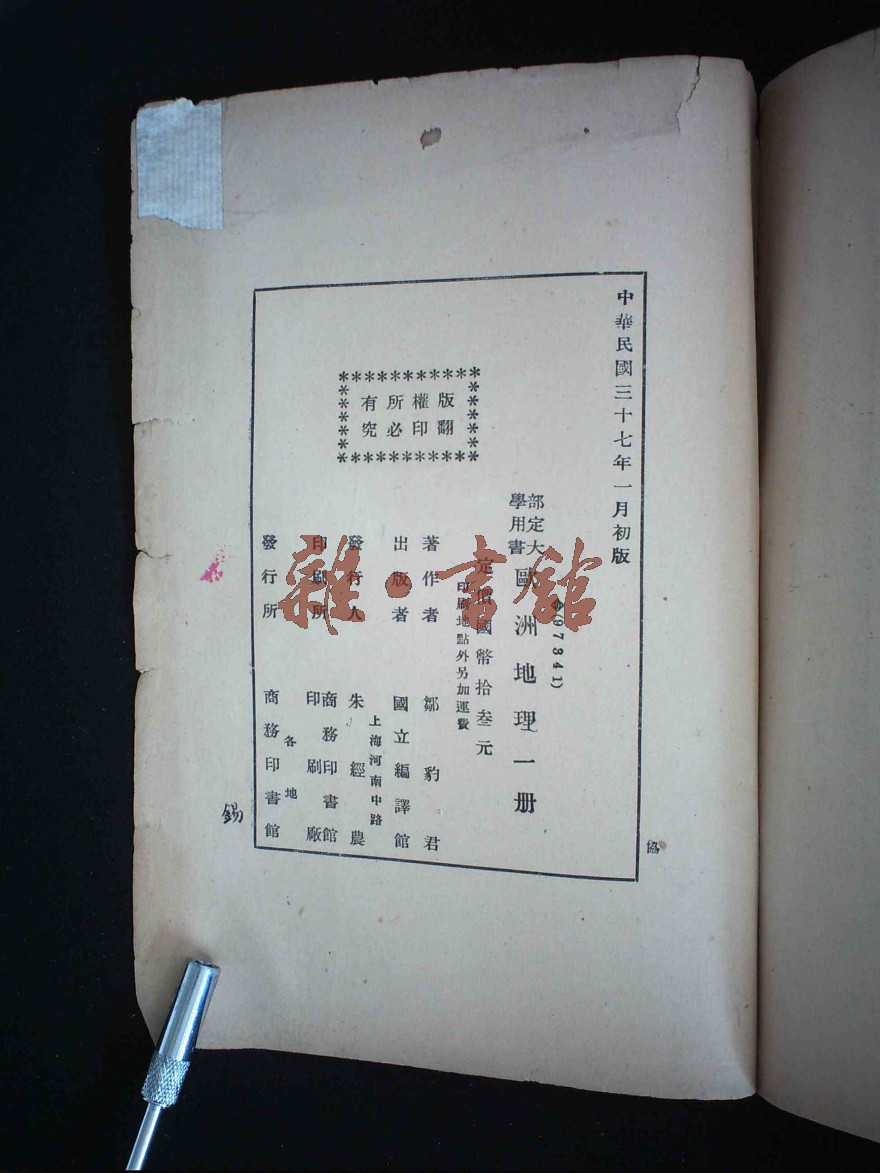 中華民國三十七年一月初版
(97341)
部定大學用書 歐洲地理一册
定價國幣拾叁元
印刷地點外另加運費
版權所有
翻印必究
著作者 鄒豹君
出版者 國立編譯館
上海河南中路
發行人 朱經農
印刷所 商務印書館印刷廠
各地
發行所 商務印書館
協
錫
雜·書館